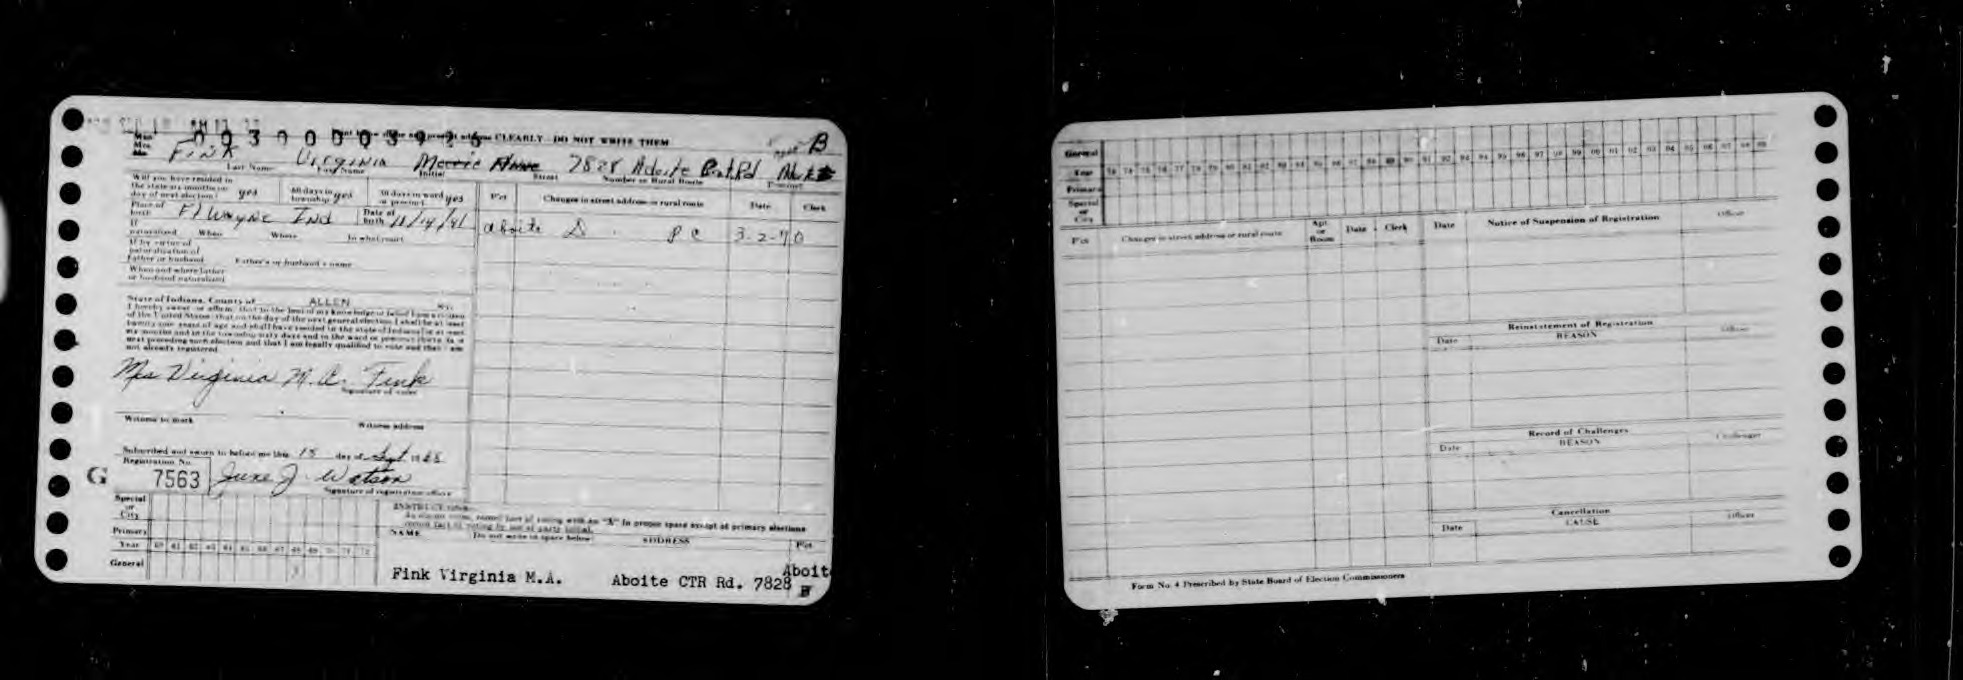 0030003926
name and present address CLEARLY - DO NOT WRITE THEM
B
Fink Virginia Merrie Anne 7828 Aboite Cnt Rd
Last Name First Name Initial Street Number or Rural Route Precinct
Will you have resided in
the state six months on
day of next election? yes 60 days in township yes 30 days in ward or precinct yes
Pct Changes in street address or rural route Date Clerk
Place of birth Ft Wayne Ind Date of birth 11/14/41
Aboite D P C 3-2-70
If naturalized When Where In what court
If by virtue of
naturalization of
Father or husband Father's or husband's name
When and where father
or husband naturalized
State of Indiana, County of ALLEN
I hereby swear or affirm that to the best of my knowledge or belief I am a citizen
of the United States; that on the day of the next general election I shall be at least
twenty-one years of age and shall have resided in the state of Indiana for at least
six months and in the township sixty days and in the ward or precinct thirty days
next preceding such election and that I am legally qualified to vote and that I am
not already registered.
Mrs Virginia M. A. Fink
Signature of voter
Witness to mark Witness address
Subscribed and sworn to before me this 18 day of Sept 1968
Registration No.
G 7563 June J. Watson
Signature of registration officer
Special
or
City
Primary
Year 60 61 62 63 64 65 66 67 68 69 70 71 72
General
INSTRUCTIONS
"X" in proper space except at primary elections
record fact of voting by use of party initial.
NAME Do not write in space below ADDRESS Pct
Fink Virginia M.A. Aboite CTR Rd. 7828 Aboite
General
Year 73 74 75 76 77 78 79 80 81 82 83 84 85 86 87 88 89 90 91 92 93 94 95 96 97 98 99 00 01 02 03 04 05 06 07 08 09
Primary
Special
or
City
Pct Changes in street address or rural route Apt. or Room Date Clerk
Date Notice of Suspension of Registration Officer
Reinstatement of Registration
Date REASON Officer
Record of Challenges
Date REASON Challenger
Cancellation
Date CAUSE Officer
Form No. 4 Prescribed by State Board of Election Commissioners